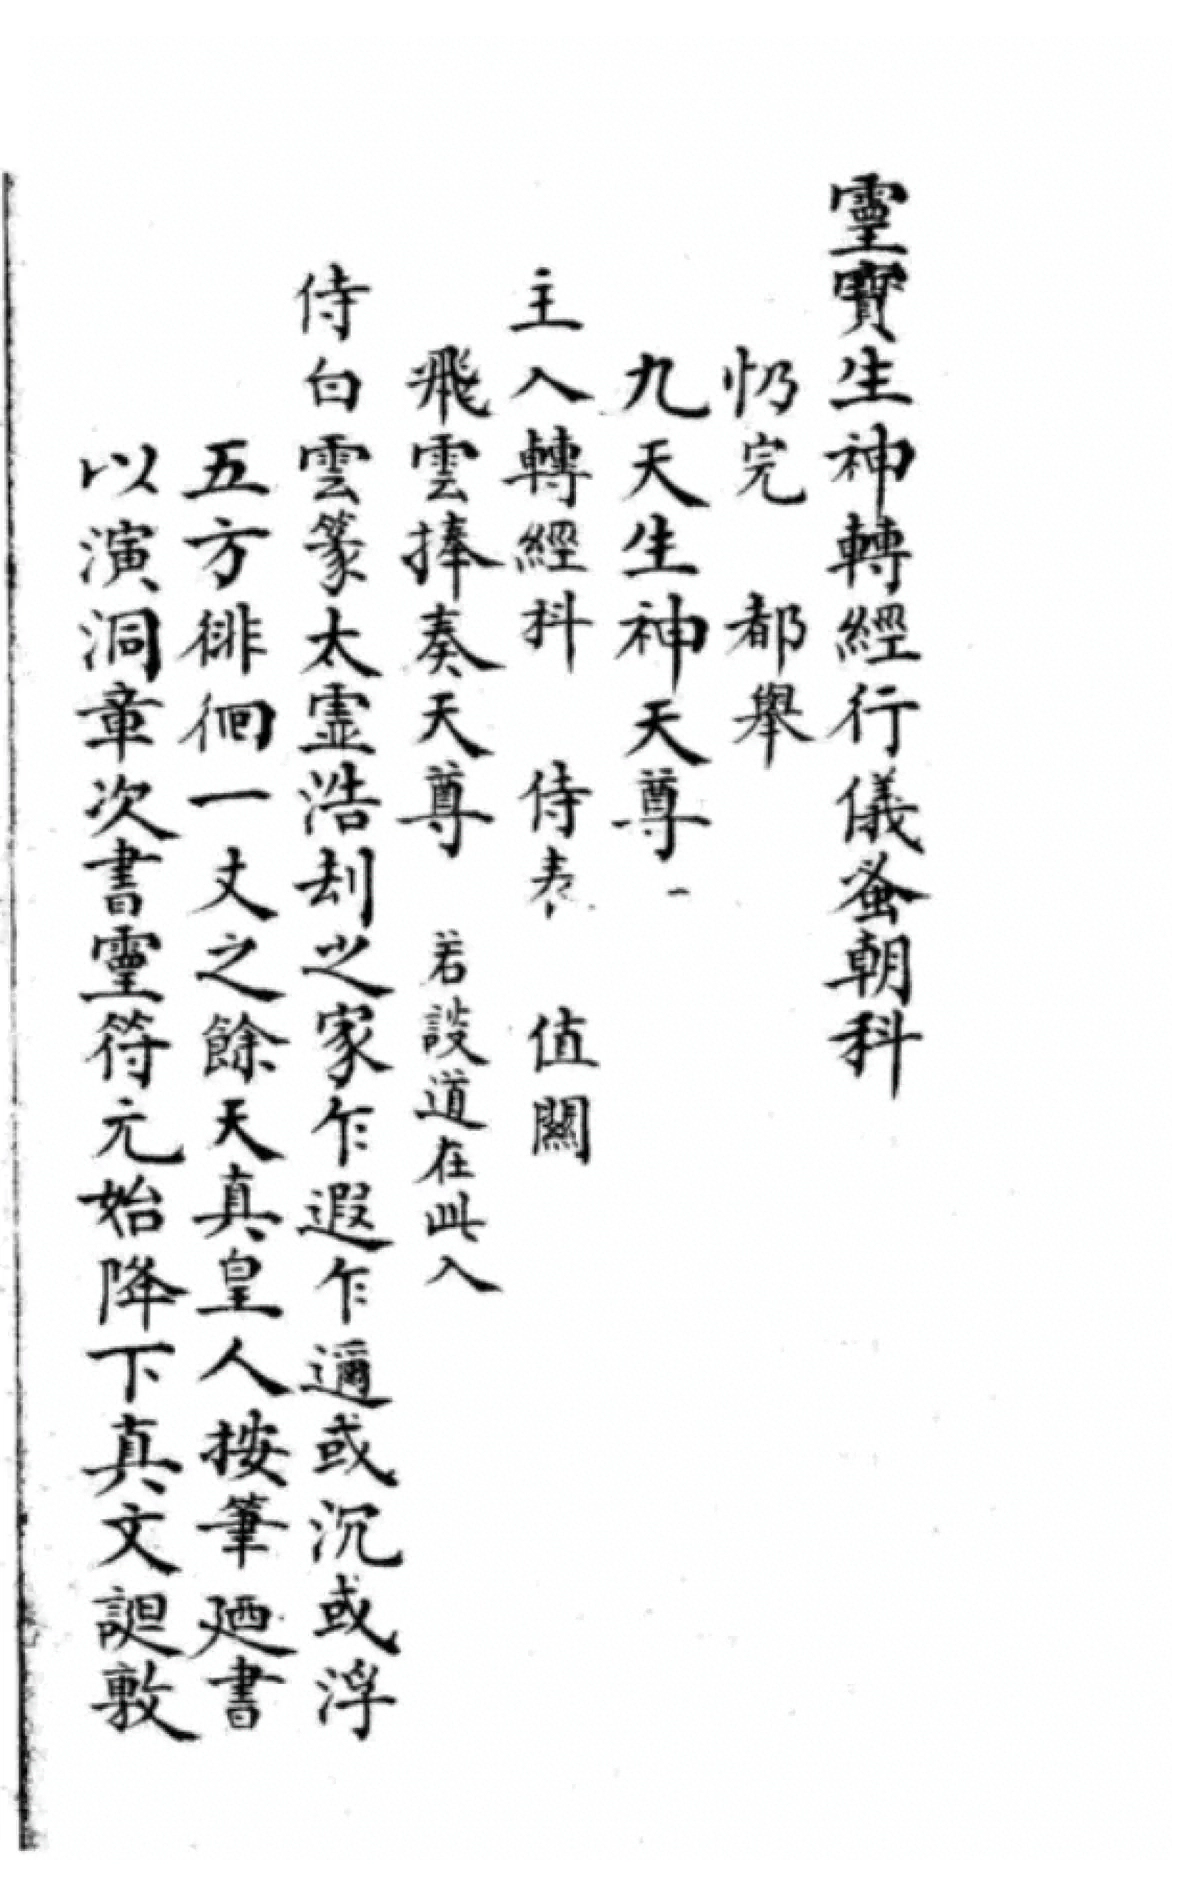 靈寶生神轉經行儀蚤朝科
忉完　都舉
九天生神天尊
主入轉經科　侍表　值關
飛雲捧奏天尊　若設道在此入
侍白雲篆太霊浩刼之家乍遐乍邇或沉或浮
五方徘徊一丈之餘天真皇人按筆廼書
以演洞章次書靈符元始降下真文誕敷